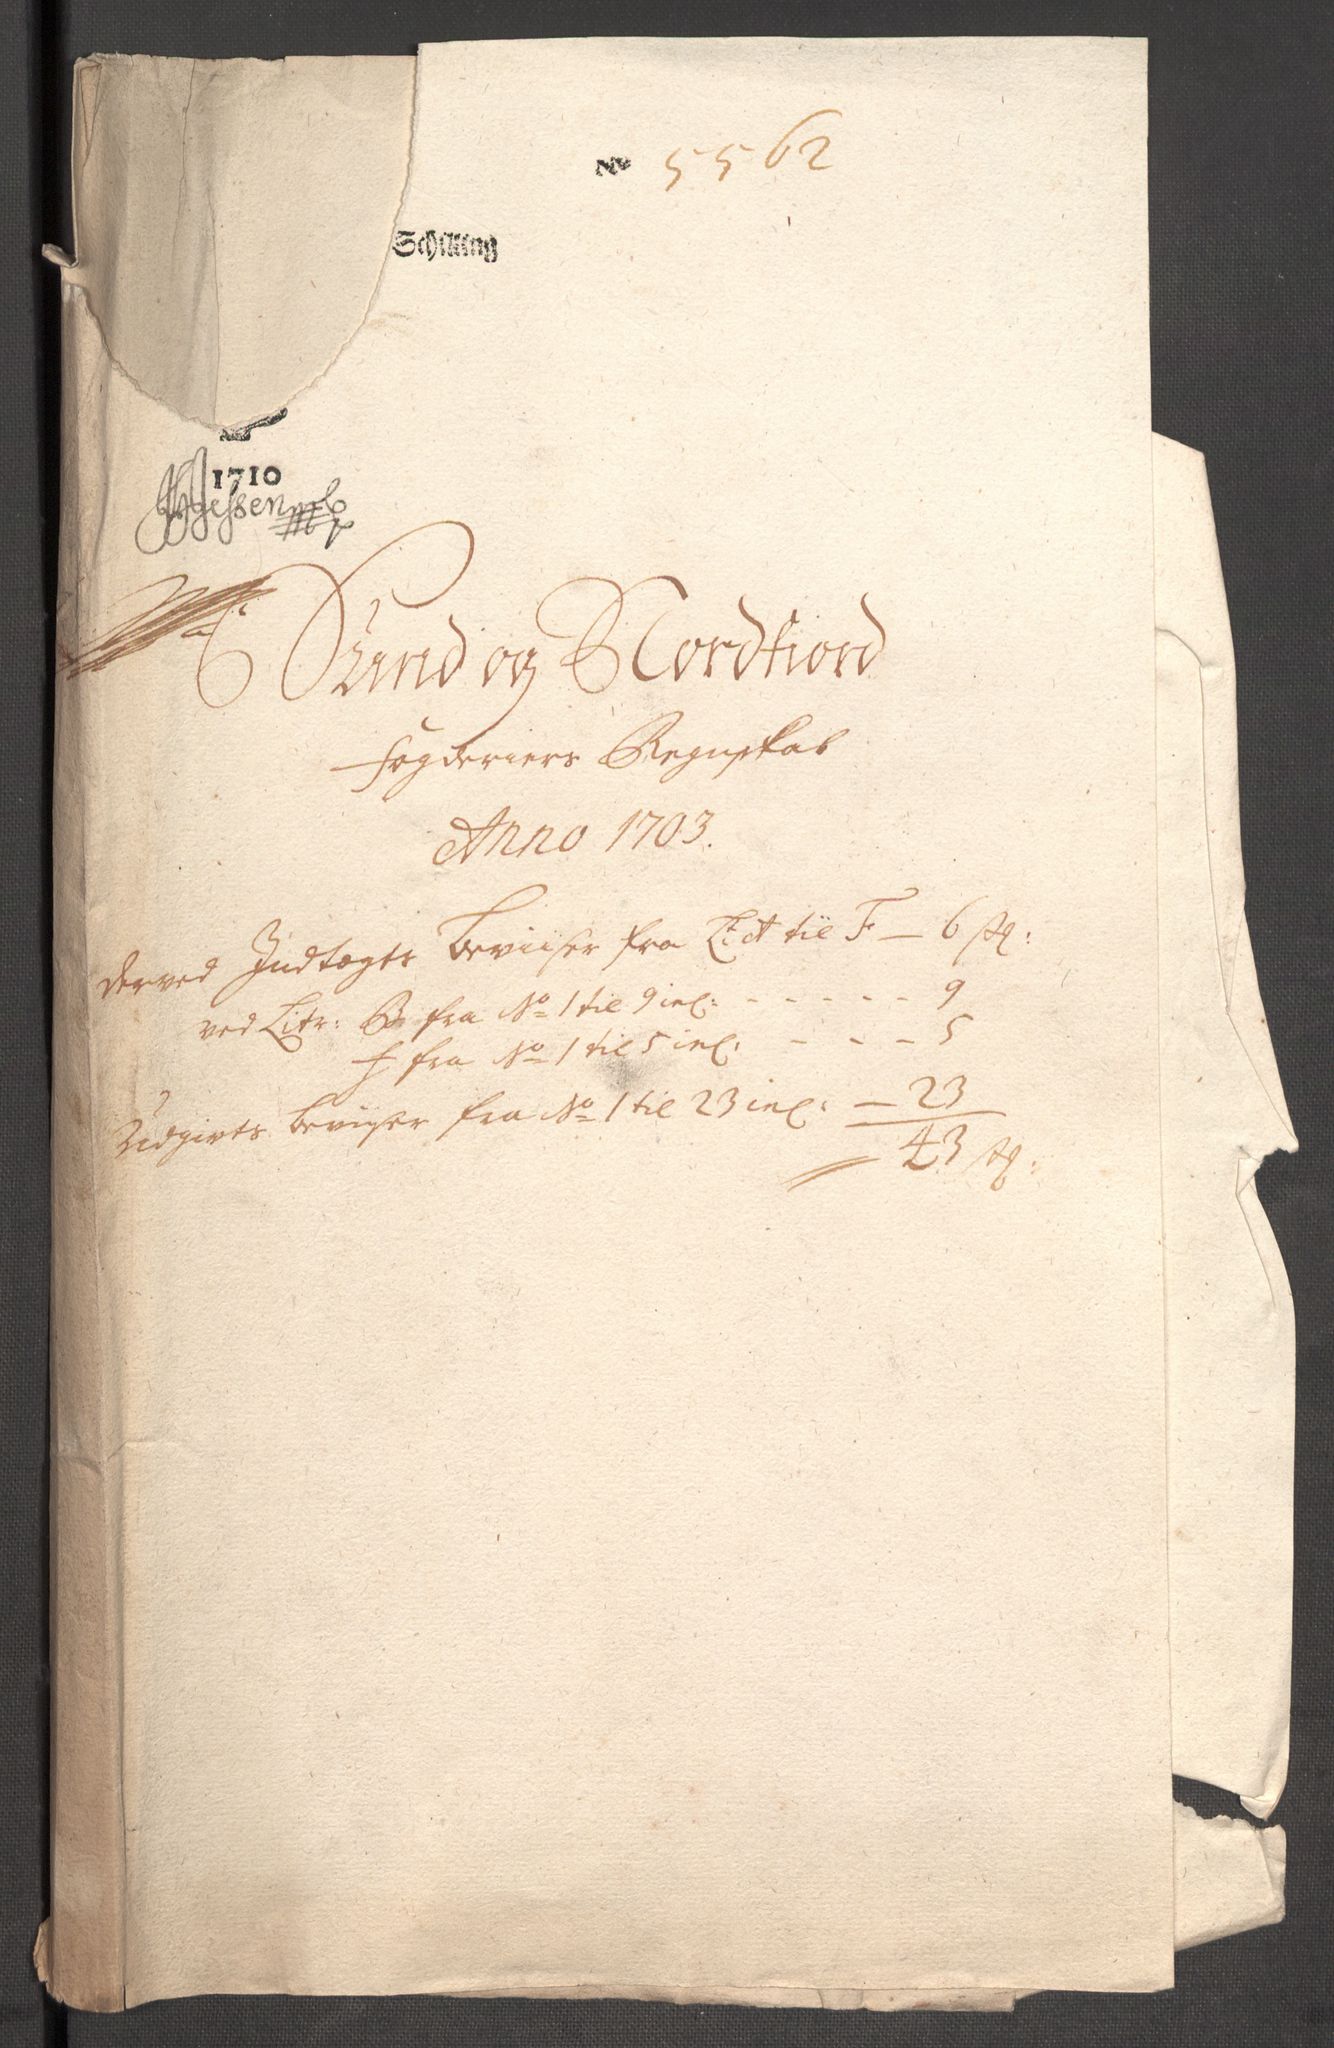 № 5562
Schilling
1710
HJessen mp
Sund og Nordfiord
fogderiers Regnskab
Anno 1703.
derved Indtægts Beviiser fra Lit A til F — 6 st:
ved Litr: B fra No 1 til 9 incl: - - - - - 9
f fra No 1 til 5 incl: - - - 5
Udgivts Beviser fra No 1 til 23 incl: — 23
43 st: